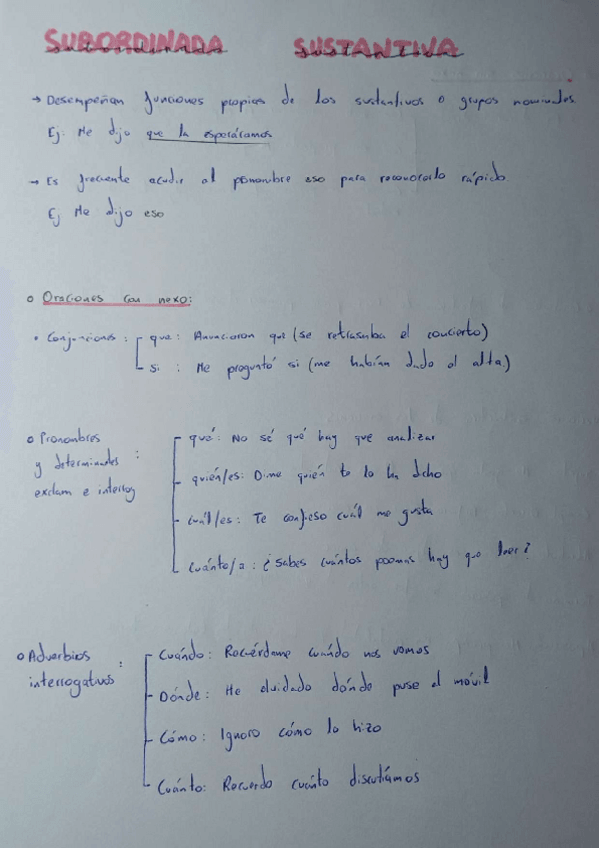 SUBORDINADA SUSTANTIVA
→ Desempeñan funciones propias de los sustantivos o grupos nominales
Ej: Me dijo que la esperáramos
→ Es frecuente acudir al pronombre eso para reconocerlo rápido
Ej Me dijo eso
o Oraciones con nexo:
• Conjunciones: que: Anunciaron que (se retrasaba el concierto)
si: Me preguntó si (me habían dado el alta)
o Pronombres
y determinantes:
exclam e interrog
qué: No sé qué hay que analizar
quién/es: Dime quién te lo ha dicho
cuál/es: Te confieso cuál me gusta
Cuánto/a: ¿Sabes cuántos poemas hay que leer?
o Adverbios
interrogativos:
Cuándo: Recuérdame cuándo nos vamos
Dónde: He olvidado dónde puse el móvil
Cómo: Ignoro cómo lo hizo
Cuánto: Recuerdo cuánto discutíamos